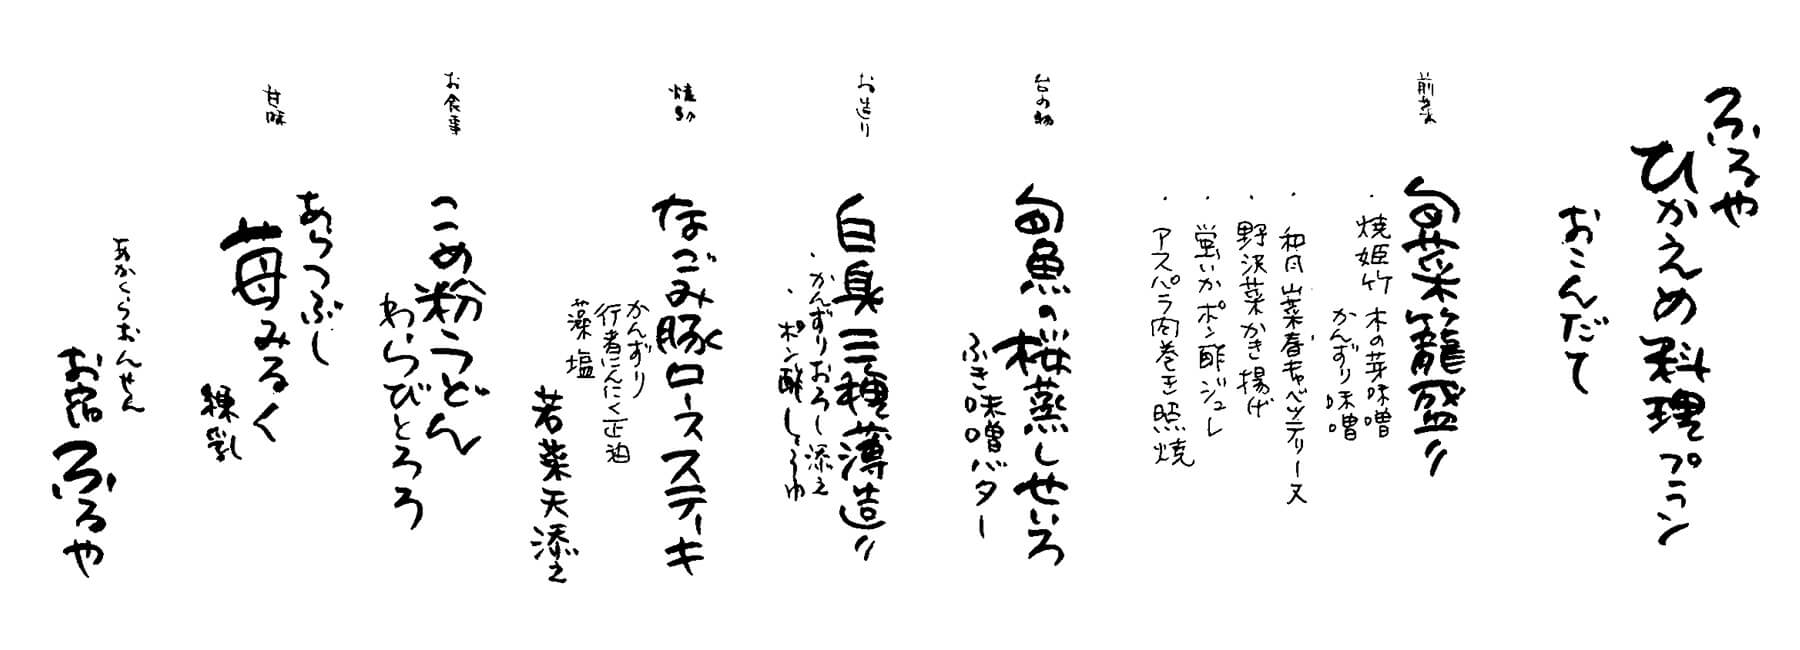 ふるや
ひかえめ料理プラン
おこんだて
前菜
旬菜籠盛り
・焼姫竹 木の芽味噌
かんずり味噌
・和風山菜春キャベツテリーヌ
・野沢菜かき揚げ
・蛍いかポン酢ジュレ
・アスパラ肉巻き照焼
台の物
旬魚の桜蒸しせいろ
ふき味噌バター
お造り
白身三種薄造り
・かんずりおろし添え
・ポン酢しょうゆ
焼物
なごみ豚ロースステーキ
かんずり
行者にんにく正油
藻塩
若菜天添え
お食事
こめ粉うどん
わらびとろろ
甘味
あらつぶし
苺みるく
練乳
あかくらおんせん
お宿 ふるや